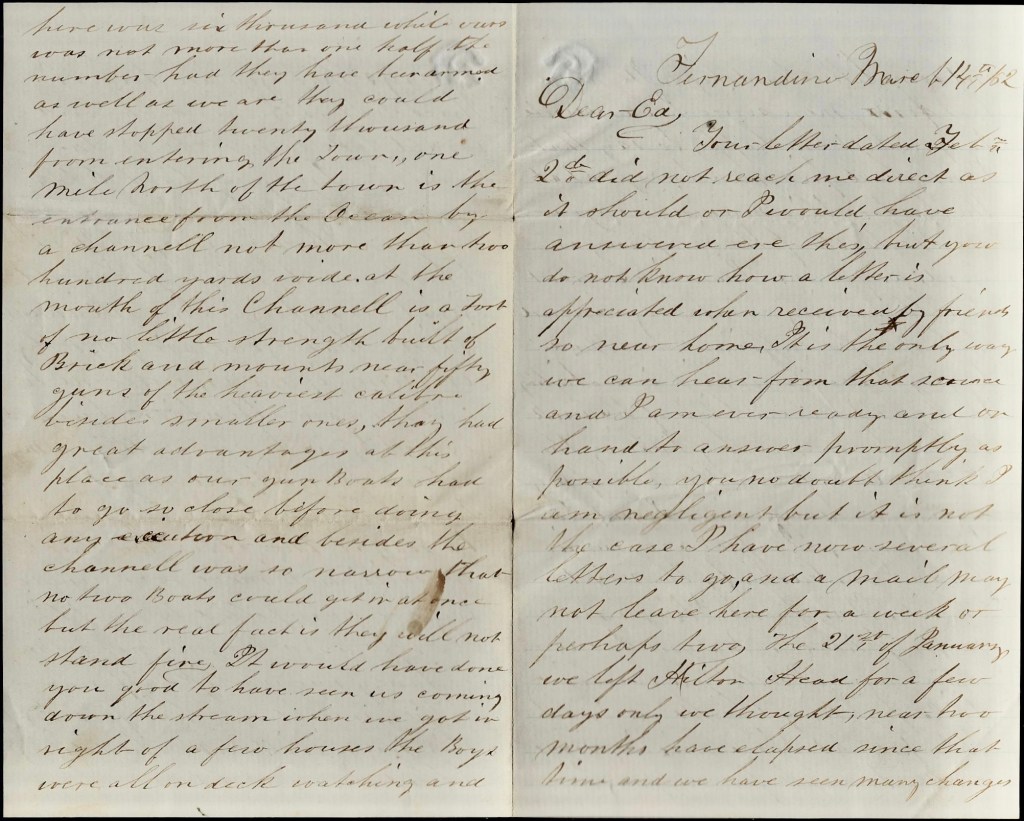 Fernandina March 14th /62
Dear Ed,
Your letter dated Feb
2nd did not reach me direct as
it should or I would have
answered ere this, but you
do not know how a letter is
appreciated when received by friends
so near home, It is the only way
we can hear from that source
and I am ever ready and on
hand to answer promptly as
possible, you no doubt think I
am negligent but it is not
the case I have now several
letters to go, and a mail may
not leave here for a week or
perhaps two, The 21st of January
we left Hilton Head for a few
days only we thought, near two
months have elapsed since that
time and we have seen many changes
here was six thousand while ours
was not more than one half the
number had they have been armed
as well as we are they could
have stopped twenty thousand
from entering the Town, one
mile North of the town is the
entrance from the Ocean by
a channell not more than two
hundred yards wide. at the
mouth of this Channell is a Fort
of no little strength built of
Brick and mounts near fifty
guns of the heaviest calibre
besides smaller ones, they had
great advantages at this
place as our gun Boats had
to go so close before doing
any execution and besides the
channell was so narrow that
no two Boats could get in at once
but the real fact is they will not
stand fire, It would have done
you good to have seen us coming
down the stream when we got in
sight of a few houses the Boys
were all on deck watching and